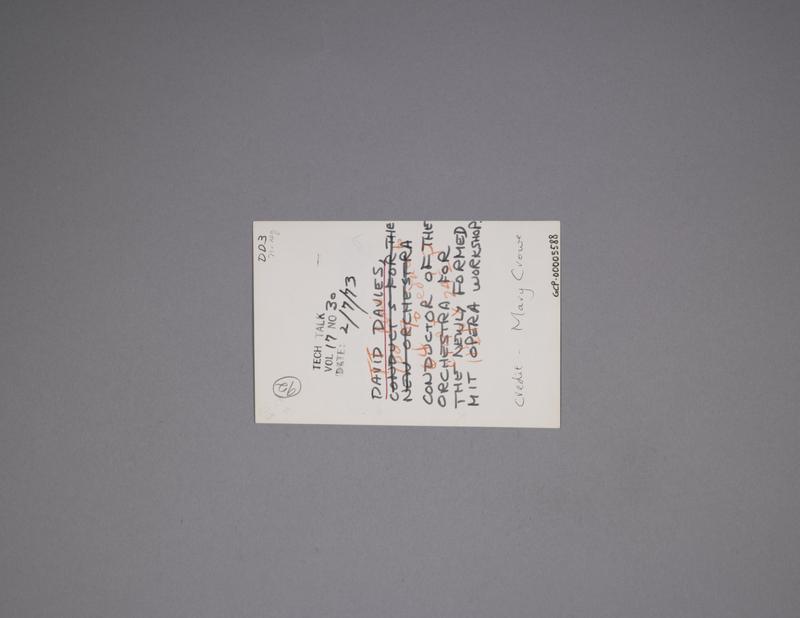 DD3
TECH TALK
VOL 17 NO 30
DATE: 2/7/73
DAVID DAVIES,
CONDUCTS FOR THE
NEW ORCHESTRA
CONDUCTOR OF THE
ORCHESTRA FOR
THE NEWLY FORMED
MIT OPERA WORKSHOP.
Credit - Mary Crowe
GCP-00005588